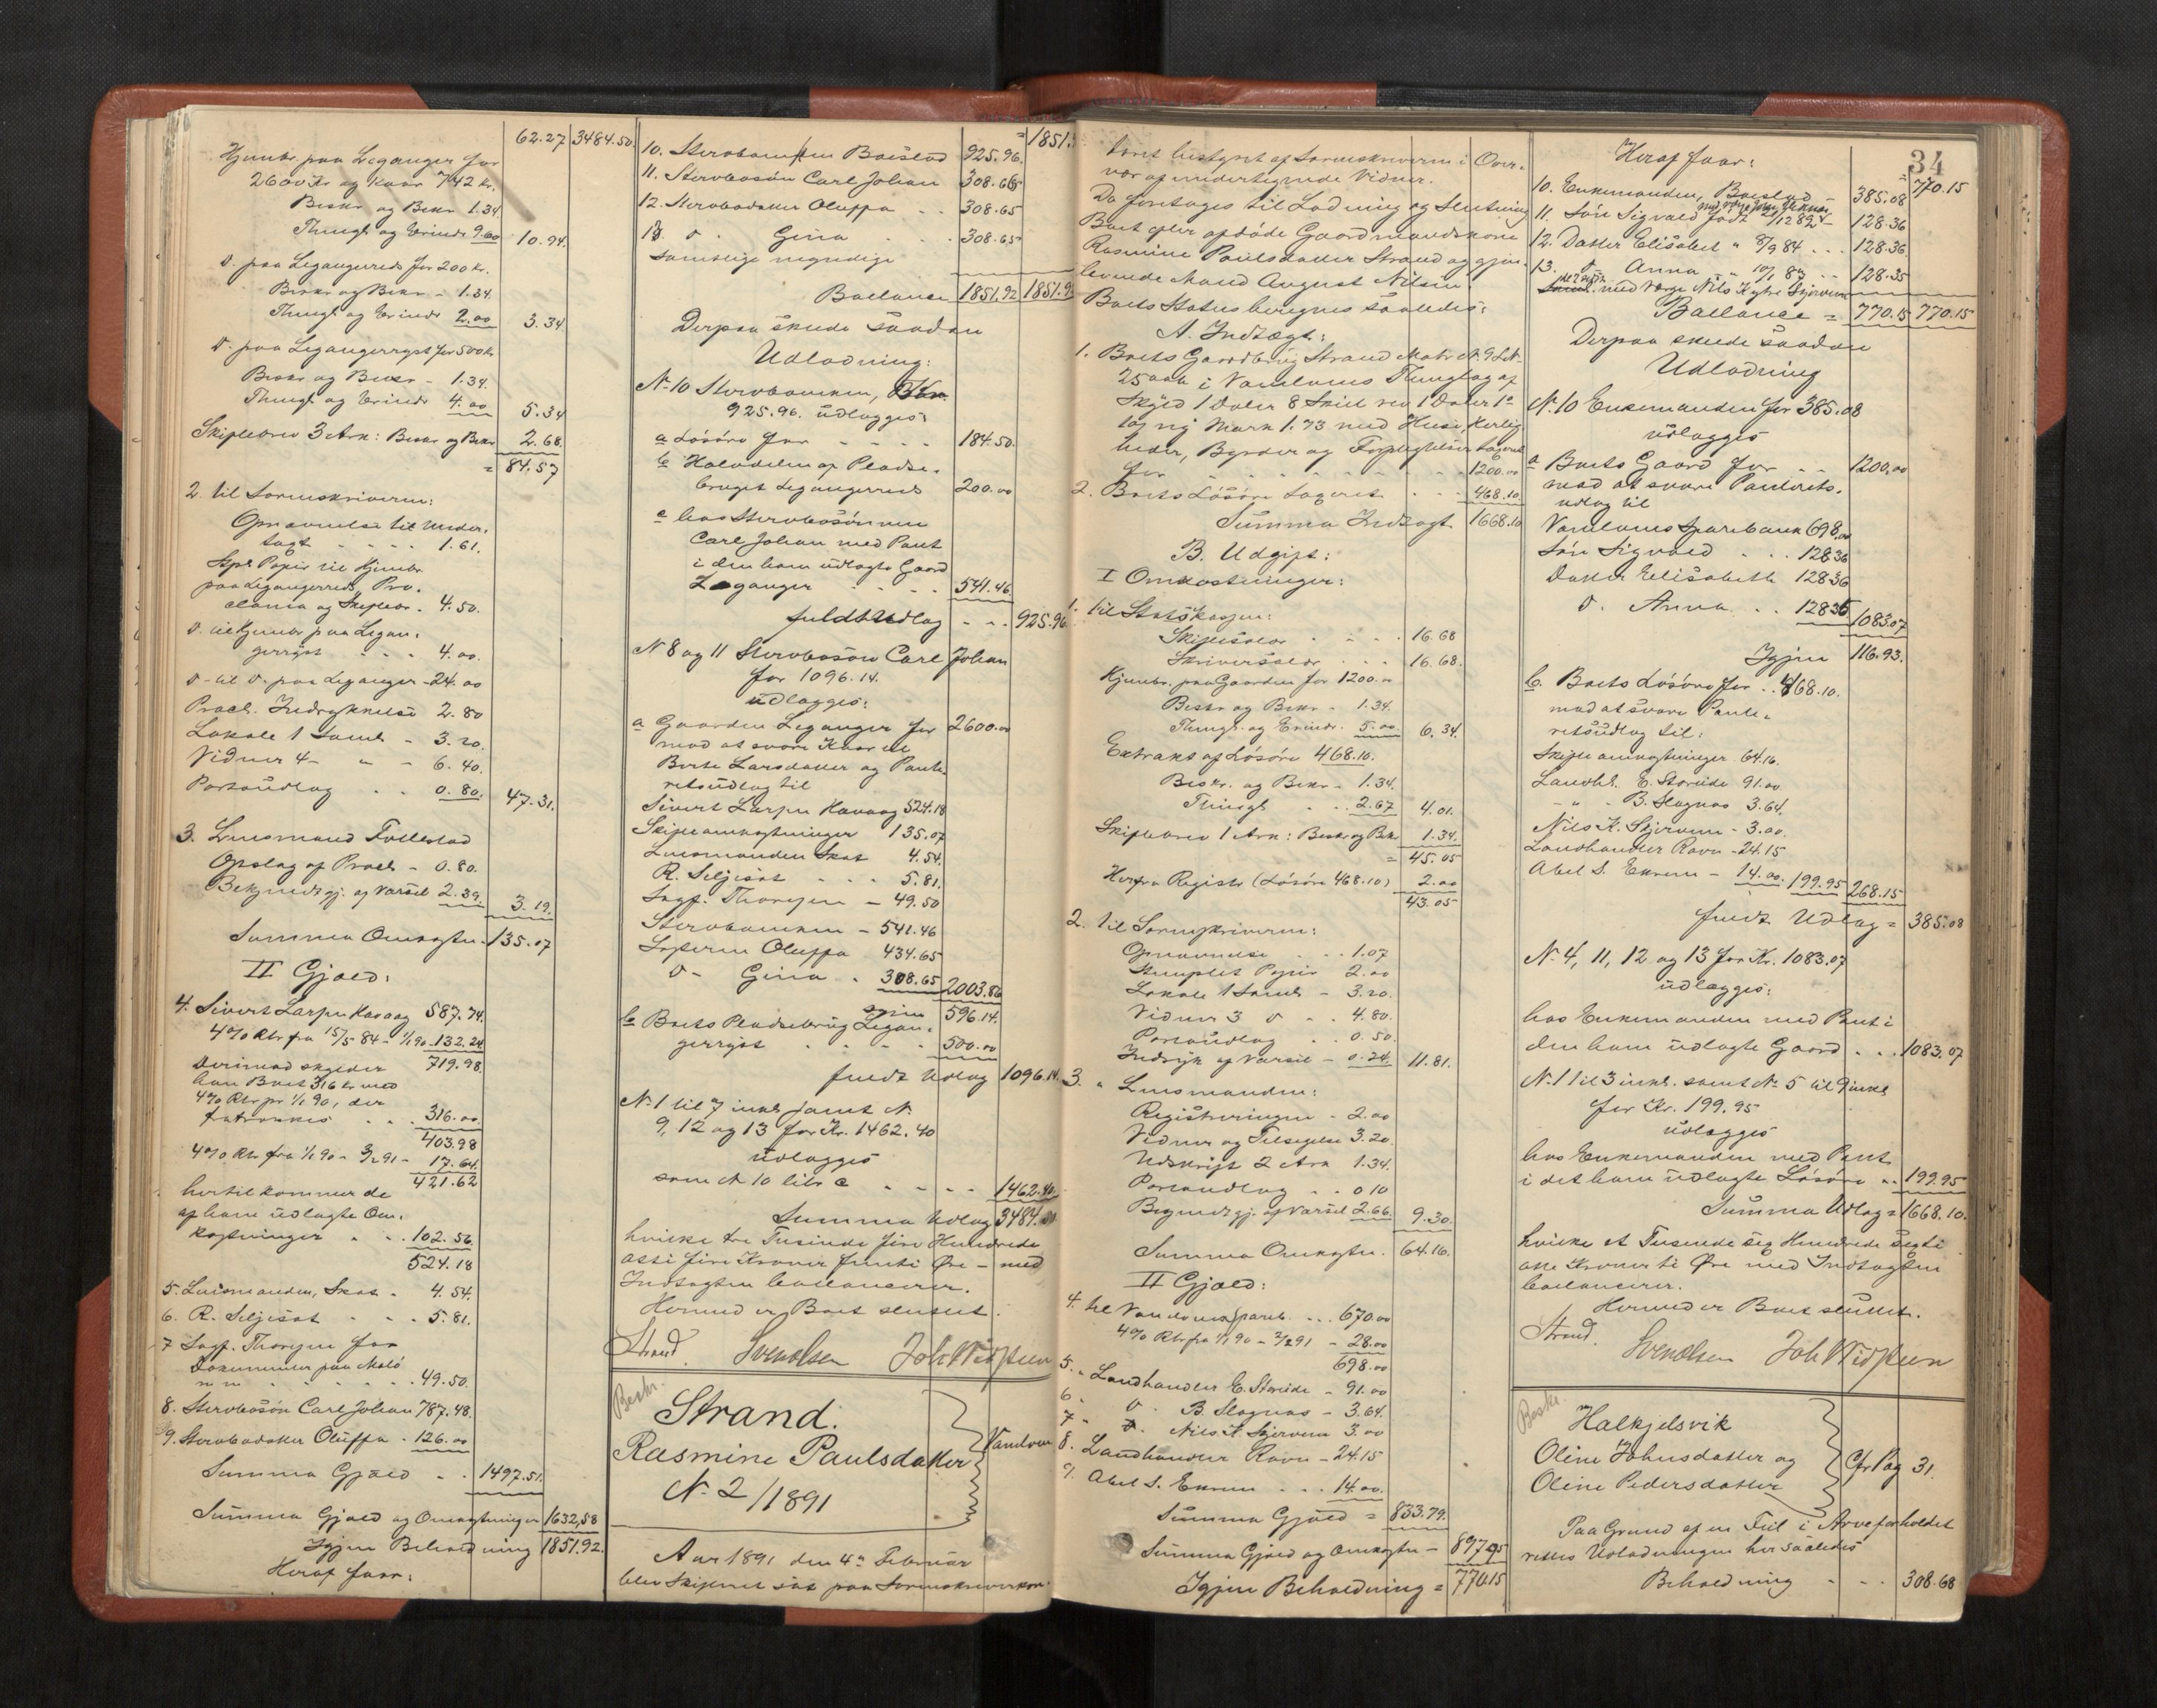 62.27 3484.50
Hjembr. paa Leganger for
2600 Kr og Kaar 742 kr.
Beskr og Bekr 1.34
Thingl og Erindr 9.60 10.94
d. paa Legangerreds for 200 kr.
Beskr og Bekr - 1.34
Thingl og Erindr 2.00 3.34
d. paa Legangerryst for 500 kr
Beskr og Bekr - 1.34.
Thingl og Erindr 4.00 5.34
Skiftebrev 3 Ark: Beskr og Bekr 2.68
= 84.57
2. til Sorenskriveren:
Opnævnelse til Under-
tagt - - - - 1.61.
Stpl. Papir til Hjembr.
paa Legangerreds, Pro-
clama og Skiftebr. - 4.50.
d. til Hjembr paa Legan-
gerryst - - - 4.00.
d - til d - paa Leganger - 24.00
Procl. Indrykkelse 2.80
Lokale 1 Saml - 3.20.
Vidner 4 - " - 6.40.
Portoudlæg . . 0.80. 47.31.
3. Lensmand Follestad
Opslag af Procl - 0.80.
Bekjendtgj. og Varsel 2.39. 3.19.
Summa Omkostn. 135.07
II Gjæld:
4. Sivert Larsen Havaag 587.74.
4% Rtr fra 15/5 84 - 1/1 90 - 132.24
Derimod skylder 719.98
han Boet 316 kr med
4% Rtr pr 1/1 90, der
fratrækkes . . . 316.00
403.98
4% Rtr fra 1/1 90 - 3/2 91 - 17.64.
421.62
hertil kommer de
af ham udlagte Om-
kostninger . . . 102.56.
524.18
5. Lensmanden, Skat - 4.54.
6. R. Seljeset - - - 5.81.
7 Sagf. Thoresen for
Dokumenter paa
m m - - - - - 49.50.
8. Stervbosøn Carl Johan 787.48.
9. Stervbodatter Oluffa - 126.00
Summa Gjæld - - 1497.51.
Summa Gjæld og Omkostninger 1632,58
Igjen Beholdning 1851.92.
Heraf faar:
= 1851.
10. Stervbomanden Boeslod 925.96.
11. Stervbosøn Carl Johan 308.66
12. Stervbodatter Oluffa . . 308.65
13 d . Gina . . . 308.65
samtlige myndige
Ballance 1851.92 1851.9
Derpaa skede saadan
Udlodning:
No 10 Stervbomanden, Kr.
925.96. udlægges:
a Løsøre for - - - - 184.50.
b Halvdelen af Pladse-
bruget Legangerreds 200.00
c hos Stervbosønnen
Carl Johan med Pant
i den ham udlagte Gaard
Leganger - - - - 541.46.
fuldt Udlæg - - - 925.96
N 8 og 11 Stervbosøn Carl Johan
for 1096.14.
udlægges:
a Gaarden Leganger for 2600.00
mod at svare Kaar til
Berte Larsdatter og Pante-
retsudlæg til
Sivert Larsen Havaag 524.18
Skifteomkostninger 135.07
Lensmanden Skat 4.54.
R. Seljeset - - - 5.81.
Sagf. Thoresen - 49.50
Stervbomanden - 541.46
Søsteren Oluffa 434.65
d - Gina - 308.65 2003.86
igjen 596.14.
b Boets Pladsebrug Legan-
gerryst - - - - 500.00
fuldt Udlæg 1096.14.
No 1 til 7 inkl samt No
9, 12 og 13 for Kr. 1462.40
udlægges
som No 10 litr c - - - - 1462.40.
Summa Udlæg 3484.50
hvilke tre Tusinde fire Hundrede
otti fire Kroner femti Øre - med
Indtægten balancerer.
Hermed er Boet sluttet.
Strand. Svendsen Joh Widsteen
Beskr.
Strand.
Rasmine Paulsdatter
N. 2/1891
Vandven
Aar 1891 den 4de Februar
blev Skifteret sat paa Sorenskriverkon-
34
toret bestyret af Sorenskriveren i Over-
vær af undertegnede Vidner.
Da foretages til Lodning og Slutning
Boet efter afdøde Gaardmandskone
Rasmine Paulsdatter Strand og gjen-
levende Mand August Nilsen.
Boets Status beregnes saaledes:
A. Indtægt:
1. Boets Gaardbrug Strand Matr No 9 LN
25 i Vandvens Thinglag af
Skyld 1 Daler 8 Skill rev 1 Daler 1 Ort
og ny Mark 1.73 med Huse, Herlig-
heder, Byrder og Forpligtelser taxeret
for - - - - - - - 1200.00
2. Boets Løsøre taxeret - - - 468.10.
Summa Indtægt 1668.10
B. Udgift:
I Omkostninger:
1. til Statskassen:
Skifteskat - - - - 16.68
Skriverskat - - - 16.68.
Hjembr. paa Gaarden for 1200.00
Beskr og Bekr - 1.34.
Thingl. og Erindr. 5.00. 6.34.
Extrakt af Løsøre 468.10.
Beskr. og Bekr - 1.34.
Thingl - - 2.67 4.01.
Skiftebrev 1 Ark: Beskr og Bekr 1.34.
= 45.05
Herfra Registr (Løsøre 468.10) 2.00
43.05
2. til Sorenskriveren:
Opnævnelse - - - 1.07
Stemplet Papir 2.00
Lokale 1 Saml - 3.20.
Vidner 3 d - - 4.80.
Portoudlæg - - 0.50.
Indryk af Varsel - 0.24. 11.81.
3. " Lensmanden:
Registreringen - 2.00
Vidner og Tilsigelse 3.20.
Udskrift 2 Ark 1.34.
Portoudlæg . . 0 10
Begjendtgj. af Varsel 2.66. 9.30.
Summa Omkostn. 64.16.
II Gjæld:
4. til Vandvens Spareb. . . . 670.00
4% Rtr fra 1/1 90 - 2/2 91 - 28.00
698.00
5. " Landhandler E. Storeide - 91.00
6 d . B. Slagnæs - 3.64.
7 " Nils K. Skjerven 3.00
8. Landhandler Ravn - 24.15
9. Abel S. Ekrem - - - 14.00.
Summa Gjæld = 833.79.
Summa Gjæld og Omkostn - 897.95
Igjen Beholdning = 770.15
Heraf faar:
= 770.15
10. Enkemanden, Boeslod 385.08
11. Søn Sigvald født 2/12 82 - 128.36
12. Datter Elisabet " 8/9 84 . . . 128.36
13. d - Anna " 10/1 87 . . 128.35
med Værge Nils Kytre Skjerven
Ballance = 770.15 770.15
Derpaa skede saadan
Udlodning
No 10 Enkemanden for 385.08
udlægges
a Boets Gaard for . . 1200.00
mod at svare Panterets-
udlæg til
Vandvens Sparebank 698.00
Søn Sigvald - . . 128.36
Datter Elisabeth 128.36
d. Anna . . 128.35 1083.07
Igjen 116.93.
b. Boets Løsøre for . . 468.10.
mod at svare Pante-
retsudlæg til:
Skifteomkostninger 64.16.
Landhl. E. Storeide 91.00.
- " - B. Slagnæs 3.64.
Nils K. Skjerven - 3.00.
Landhandler Ravn - 24.15
Abel S. Ekrem - 14.00. 199.95 268.15
fuldt Udlæg = 385.08
No 4, 11, 12 og 13 for Kr. 1083.07
udlægges:
hos Enkemanden med Pant i
den ham udlagte Gaard . . . 1083.07
No 1 til 3 inkl. samt No 5 til 9 inkl
for Kr. 199.95
udlægges
hos Enkemanden med Pant
i det ham udlagte Løsøre . . 199.95
Summa Udlæg = 1668.10.
hvilke et Tusende sex Hundrede sexti
otte Kroner ti Øre med Indtægten
ballancerer.
Hermed er Boet sluttet.
Strand. Svendsen Joh Widsteen
Beskr.
Halkjelsvik
Oline Johnsdatter og
Oline Pedersdatter
Cfr Pag 31.
Paa Grund af en Feil i Arveforholdet
rettes Udlodningen her saaledes
Beholdning - - - 308.68